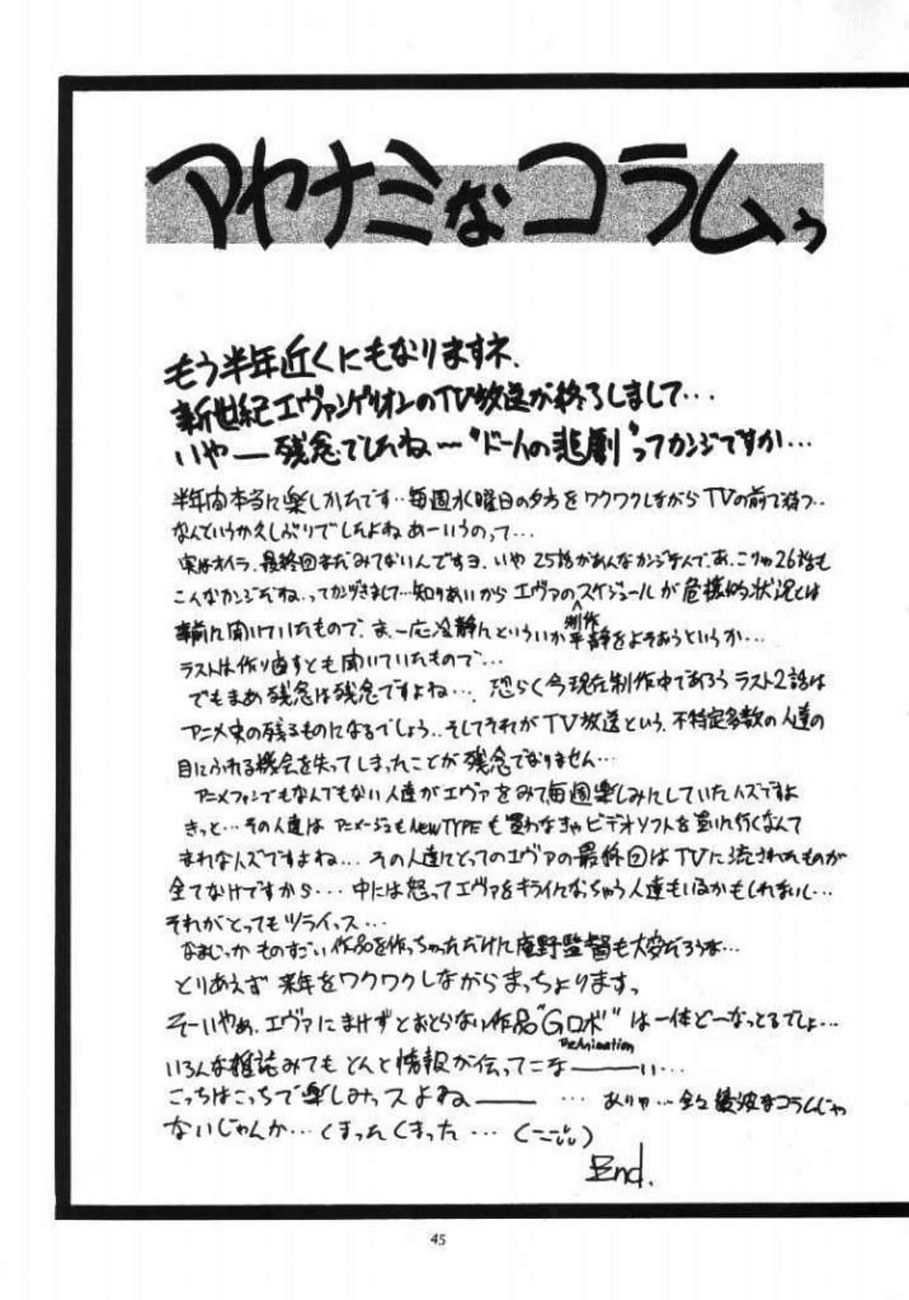 アヤナミなコラムぅ
もう半年近くにもなりますネ.
新世紀エヴァンゲリオンのTV放送が終了しまして…
いやー残念でしたね〜“ドームの悲劇”ってカンジですか…
半年間本当に楽しかたです‥毎週水曜日の夕方をワクワクしながらTVの前で待つ‥
なんというか久しぶりでしたよね あーいうのって…
実はオイラ、最終回まだみてないんですヨ. いや25話があんなかんじなんで、あ、こりゃ26話も
こんなカンジだね、ってカンヅきまして…知りあいからエヴァの制作スケジュールが危機的状況とは
事前に聞いていたもので、ま、一応冷静んといういか平静をよそおうというか…
ラストは作り直すとも聞いていたもので…
でもまぁ残念は残念ですよね…. 恐らく今現在制作中であろうラスト2話は
アニメ史の残るものになるでしょう‥そしてそれがTV放送という、不特定多数の人達の
目にふれる機会を失ってしまったことが残念でなりません…
アニメファンでもなんでもない人達がエヴァをみて毎週楽しみにしていたハズですよ
きっと…その人達はアニメージュもNEWTYPEも買わなきゃビデオソフトを買いに行くなんて
まれなハズですよね… その人達にとってのエヴァの最終回はTVに流されたものが
全てなけですから… 中には怒ってエヴァをキライになっちゃう人達もいるかもしれまいし…
それがとってもツライっス…
なまじっかものすごい作品を作っちゃっただけに庵野監督も大変だろうな…
とりあえず来年をワクワクしながらまっちょります。
そーいやぁ、エヴァにまけずとおとらない作品“Gロボ”は一体どーなっとるでしょ…
The Animation
いろんな雑誌みてもとんと情報が伝ってこなーーーい…
こっちはこっちで楽しみっスよねーー … ありゃ…全々綾波なコラムじゃ
ないじゃんか…くまったくまった…
End.
45